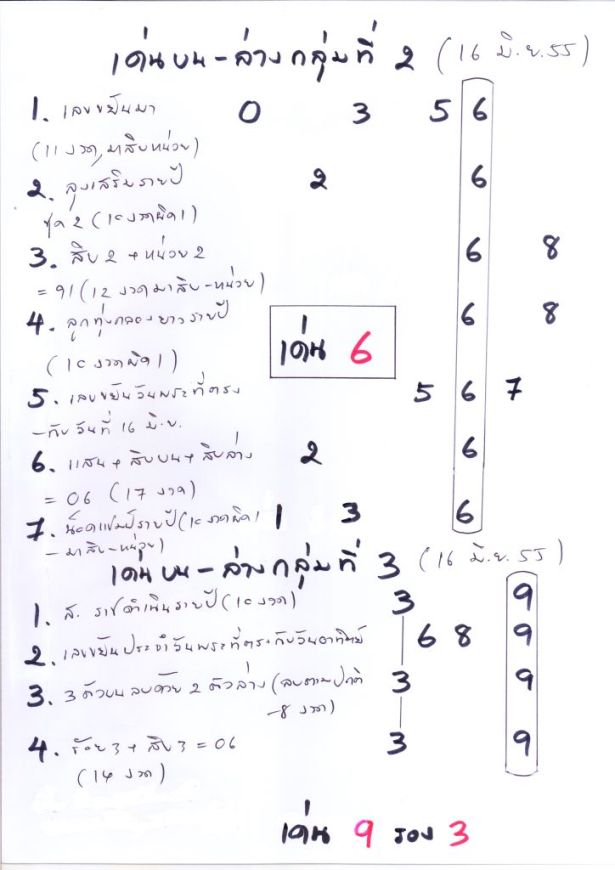 เด่นบน-ล่างกลุ่มที่ 2 (16 มิ.ย.55)
1. เลขขยันมา 0 3 5 6
(11 งวด, มาสิบหน่วย)
2. ลุงเสริมรายปี 2 6
ชุด 2 (10 งวดผิด 1)
3. สิบ 2 + หน่วย 2 6 8
= 91 (12 งวดมาสิบ-หน่วย)
4. ลูกทุ่งกลองยาวรายปี 6 8
(10 งวดผิด 1)
เด่น 6
5. เลขขยันวันพระที่ตรง 5 6 7
-กับวันที่ 16 มิ.ย.
6. แสน + สิบบน + สิบล่าง 2 6
= 06 (17 งวด)
7. น็อคแชมป์รายปี (10 งวดผิด 1 1 3 6
-มาสิบ-หน่วย)
เด่นบน-ล่างกลุ่มที่ 3 (16 มิ.ย.55)
1. ส. ราชดำเนินรายปี (10 งวด) 3 9
2. เลขขยันประจำวันพระที่ตรงกับวันอาทิตย์ 6 8 9
3. 3 ตัวบนลบด้วย 2 ตัวล่าง (ลบตามปกติ 3 9
-8 งวด)
4. ร้อย 3 + สิบ 3 = 06 3 9
(14 งวด)
เด่น 9 รอง 3